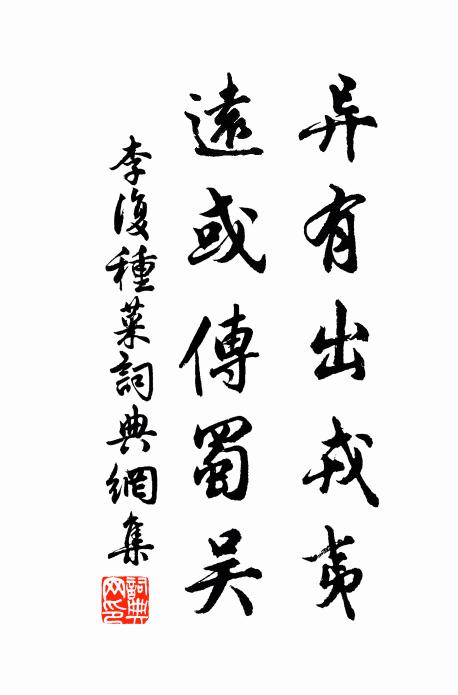 异有出戎夷
遠或傳蜀吴
李復種菜詞典網集
詞典网印